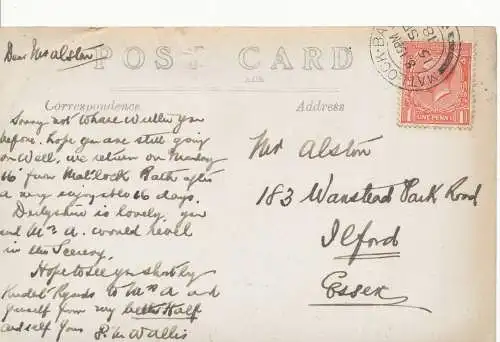 Dear Mrs Alston
POST CARD
Correspondence
Address
MATLOCK-BA
18 SP
ONE PENNY
Sorry not to have written you
before. hope you are still going
on well, we return on Monday
16 from Matlock Bath after
a very enjoyable 16 days.
Derbyshire is lovely. you
and Mr A. would revel
in the Scenery.
Hope to see you shortly
Kindest Regards to Mr A and
yourself from my better Half
and self yours
Wallis
Mrs Alston
183 Wanstead Park Road
Ilford
Essex